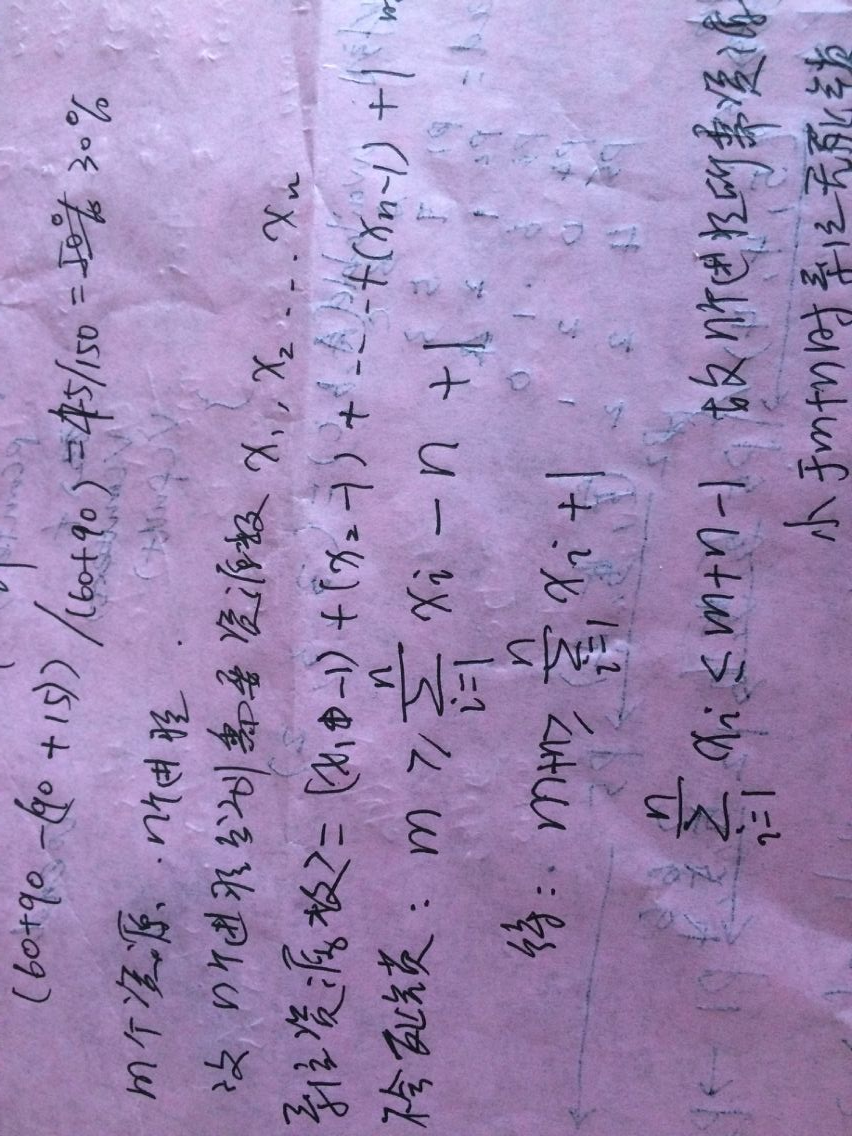 (60+90-(90+15))/(60+90)=45/150=50% 30%
m个资源、n个进程.
设 n个进程分别需要资源数 x₁, x₂ ... xₙ
系统资源数≥(x₁-1)+(x₂-1)+---+(xₙ-1)+1
不会死锁: m ≥ \sum_{i=1}^{n} xᵢ - n + 1
得: m+n ≥ \sum_{i=1}^{n} xᵢ + 1
\sum_{i=1}^{n} xᵢ ≤ m+n-1 故n个进程的需资源
小于m+n时系统无死锁